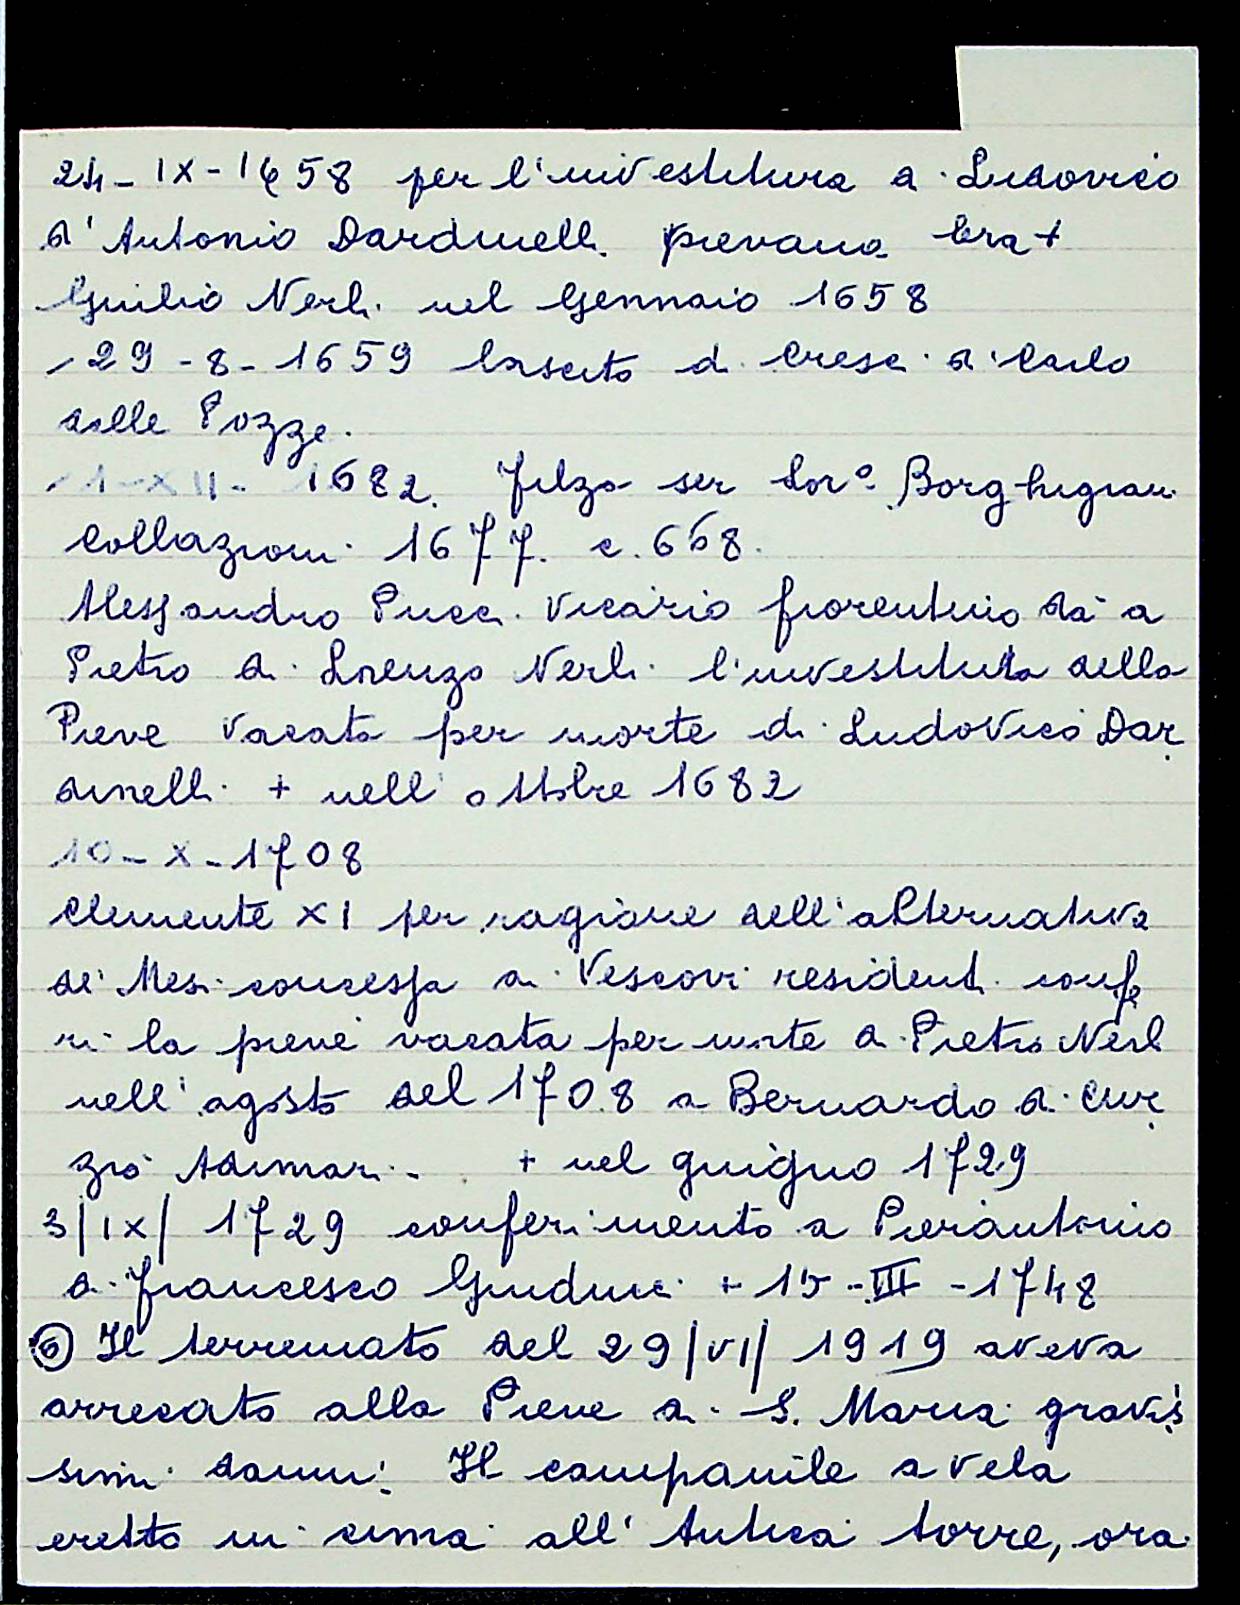 24-IX-1658 per l'investitura a Ludovico
d'Antonio Dardinelli. pievano era +
Giulio Nerli nel Gennaio 1658
-29-8-1659 lascito di Cresci di Carlo
delle Pozze.
-1-XII-1682. Filza ser Lorº Borghigiani
Collazioni 1677. c. 668.
Alessandro Pucci Vicario fiorentino dà a
Pietro di Lorenzo Nerli l'investitura della
Pieve vacata per morte di Ludovico Dar
dinelli + nell'ottobre 1682
10-X-1708
Clemente XI per ragione dell'alternativa
de' Mesi concessa ai Vescovi residenti confe
rì la pieve vacata per morte di Pietro Nerli
nell'agosto del 1708 a Bernardo di Cur
zio Adimari. + nel giugno 1729
3/IX/1729 conferimento a Pierantonio
di Francesco Giuduci + 15-III-1748
Il terremoto del 29/VI/1919 aveva
arrecato alla Pieve di S. Maria gravis
simi danni. Il campanile a vela
eretto in cima all'Antica torre, ora